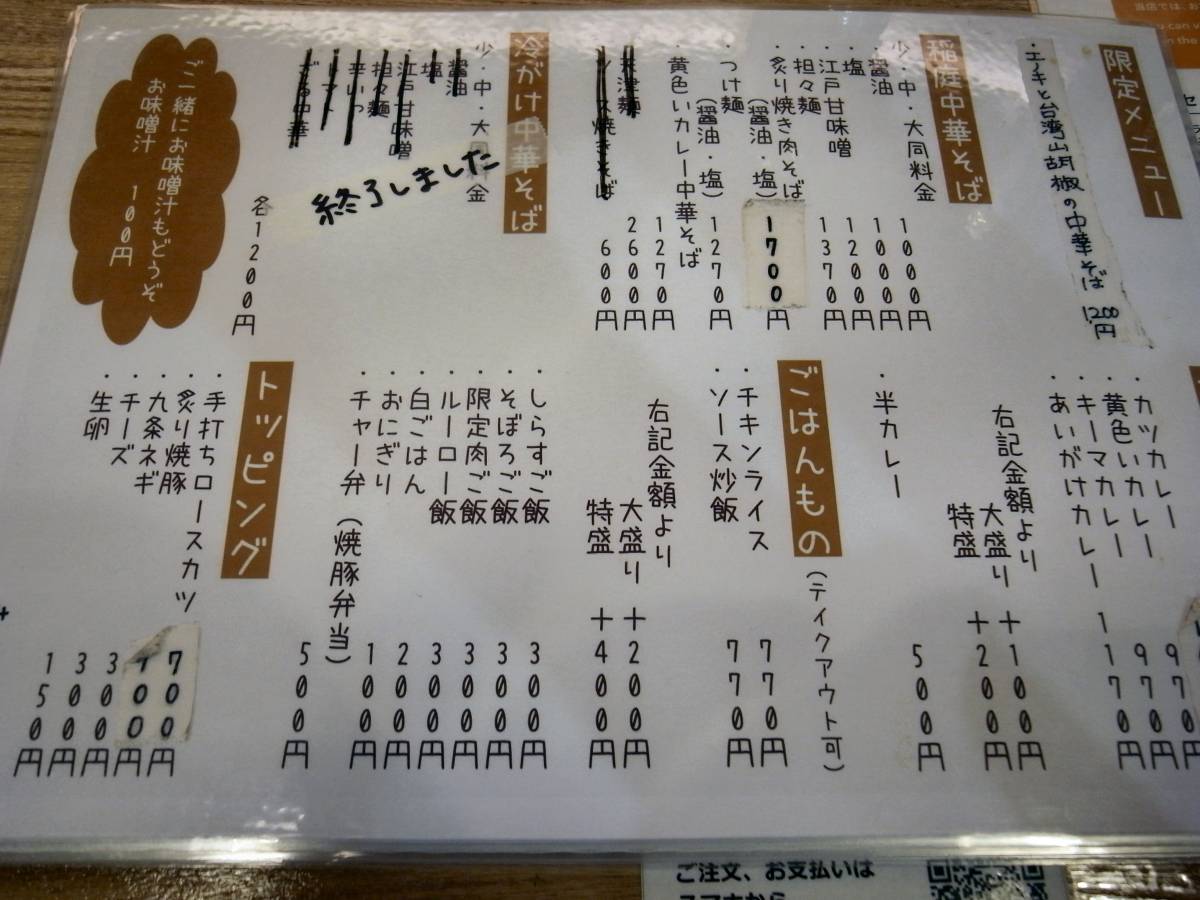 限定メニュー
・エノキと台湾山胡椒の中華そば 1,200円
稲庭中華そば
少・中・大同料金
・醤油 1000円
・塩 1000円
・江戸甘味噌 1200円
・担々麺 1370円
・炙り焼き肉そば
（醤油・塩） 1700円
・つけ麺
（醤油・塩） 1270円
・黄色いカレー中華そば 1270円
2600円
600円
冷がけ中華そば
少・中・大同料金
・醤油
・塩
・江戸甘味噌
・担々麺
終了しました
各1200円
ご一緒にお味噌汁もどうぞ
お味噌汁 100円
・カツカレー 970円
・黄色いカレー 970円
・キーマカレー 970円
・あいがけカレー 1170円
右記金額より
大盛り ＋100円
特盛 ＋200円
・半カレー 500円
ごはんもの（テイクアウト可）
・チキンライス 770円
・ソース炒飯 770円
右記金額より
大盛り ＋200円
特盛 ＋400円
・しらすご飯 300円
・そぼろご飯 300円
・限定肉ご飯 300円
・ルーロー飯 300円
・白ごはん 200円
・おにぎり 100円
・チャー弁（焼豚弁当） 500円
トッピング
・手打ちロースカツ 700円
・炙り焼豚 700円
・九条ネギ 300円
・チーズ 300円
・生卵 150円
当店では、お
ご注文、お支払いは
スマホから